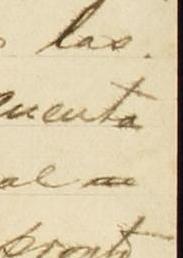 las.
cuenta
al
pronto